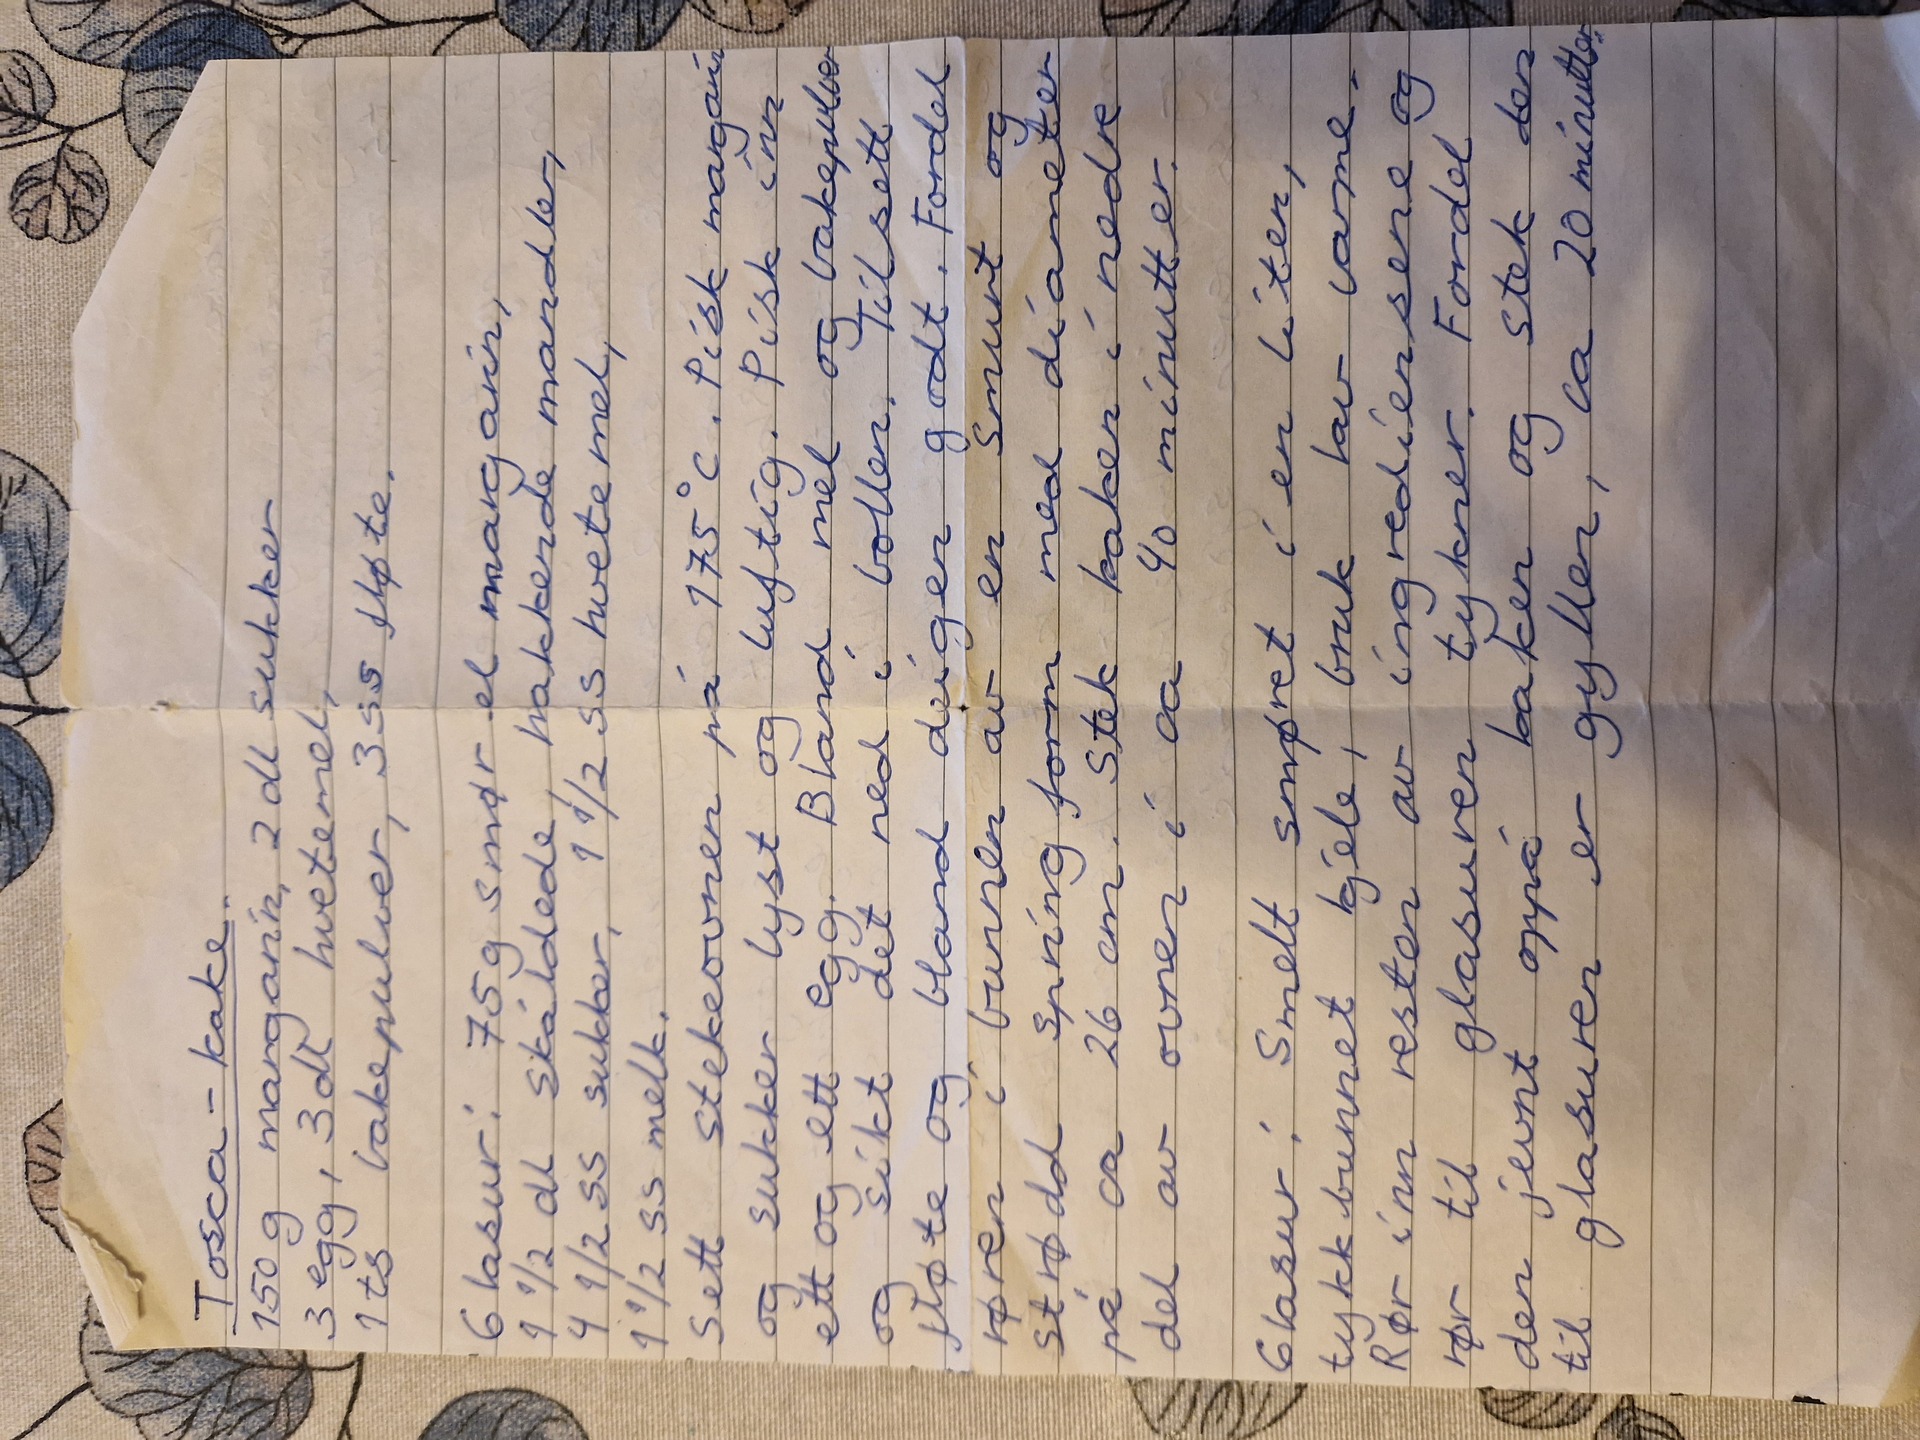 Tosca-kake.
150 g margarin, 2 dl sukker
3 egg, 3 dl hvetemel,
1 ts bakepulver, 3 ss fløte.
Glasur: 75 g smør el margarin,
1 1/2 dl skåldede, hakkende mandler,
4 1/2 ss sukker, 1 1/2 ss hvetemel,
1 1/2 ss melk.
Sett stekeovnen på 175°C. Pisk margarin
og sukker lyst og luftig. Pisk inn
ett og ett egg. Bland mel og bakepulver
og sikt det ned i bollen. Tilsett
fløte og bland deigen godt. Fordel
røren i bunnen av en smurt og
strødd springform med diameter
på ca 26 cm. Stek kaken i nedre
del av ovnen i ca 40 minutter.
Glasur: Smelt smøret i en liten,
tykkbunnet kjele, bruk lav varme.
Rør inn resten av ingrediensene og
rør til glasuren tykner. Fordel
den jevnt oppå kaken og stek den
til glasuren er gyllen, ca 20 minutter.